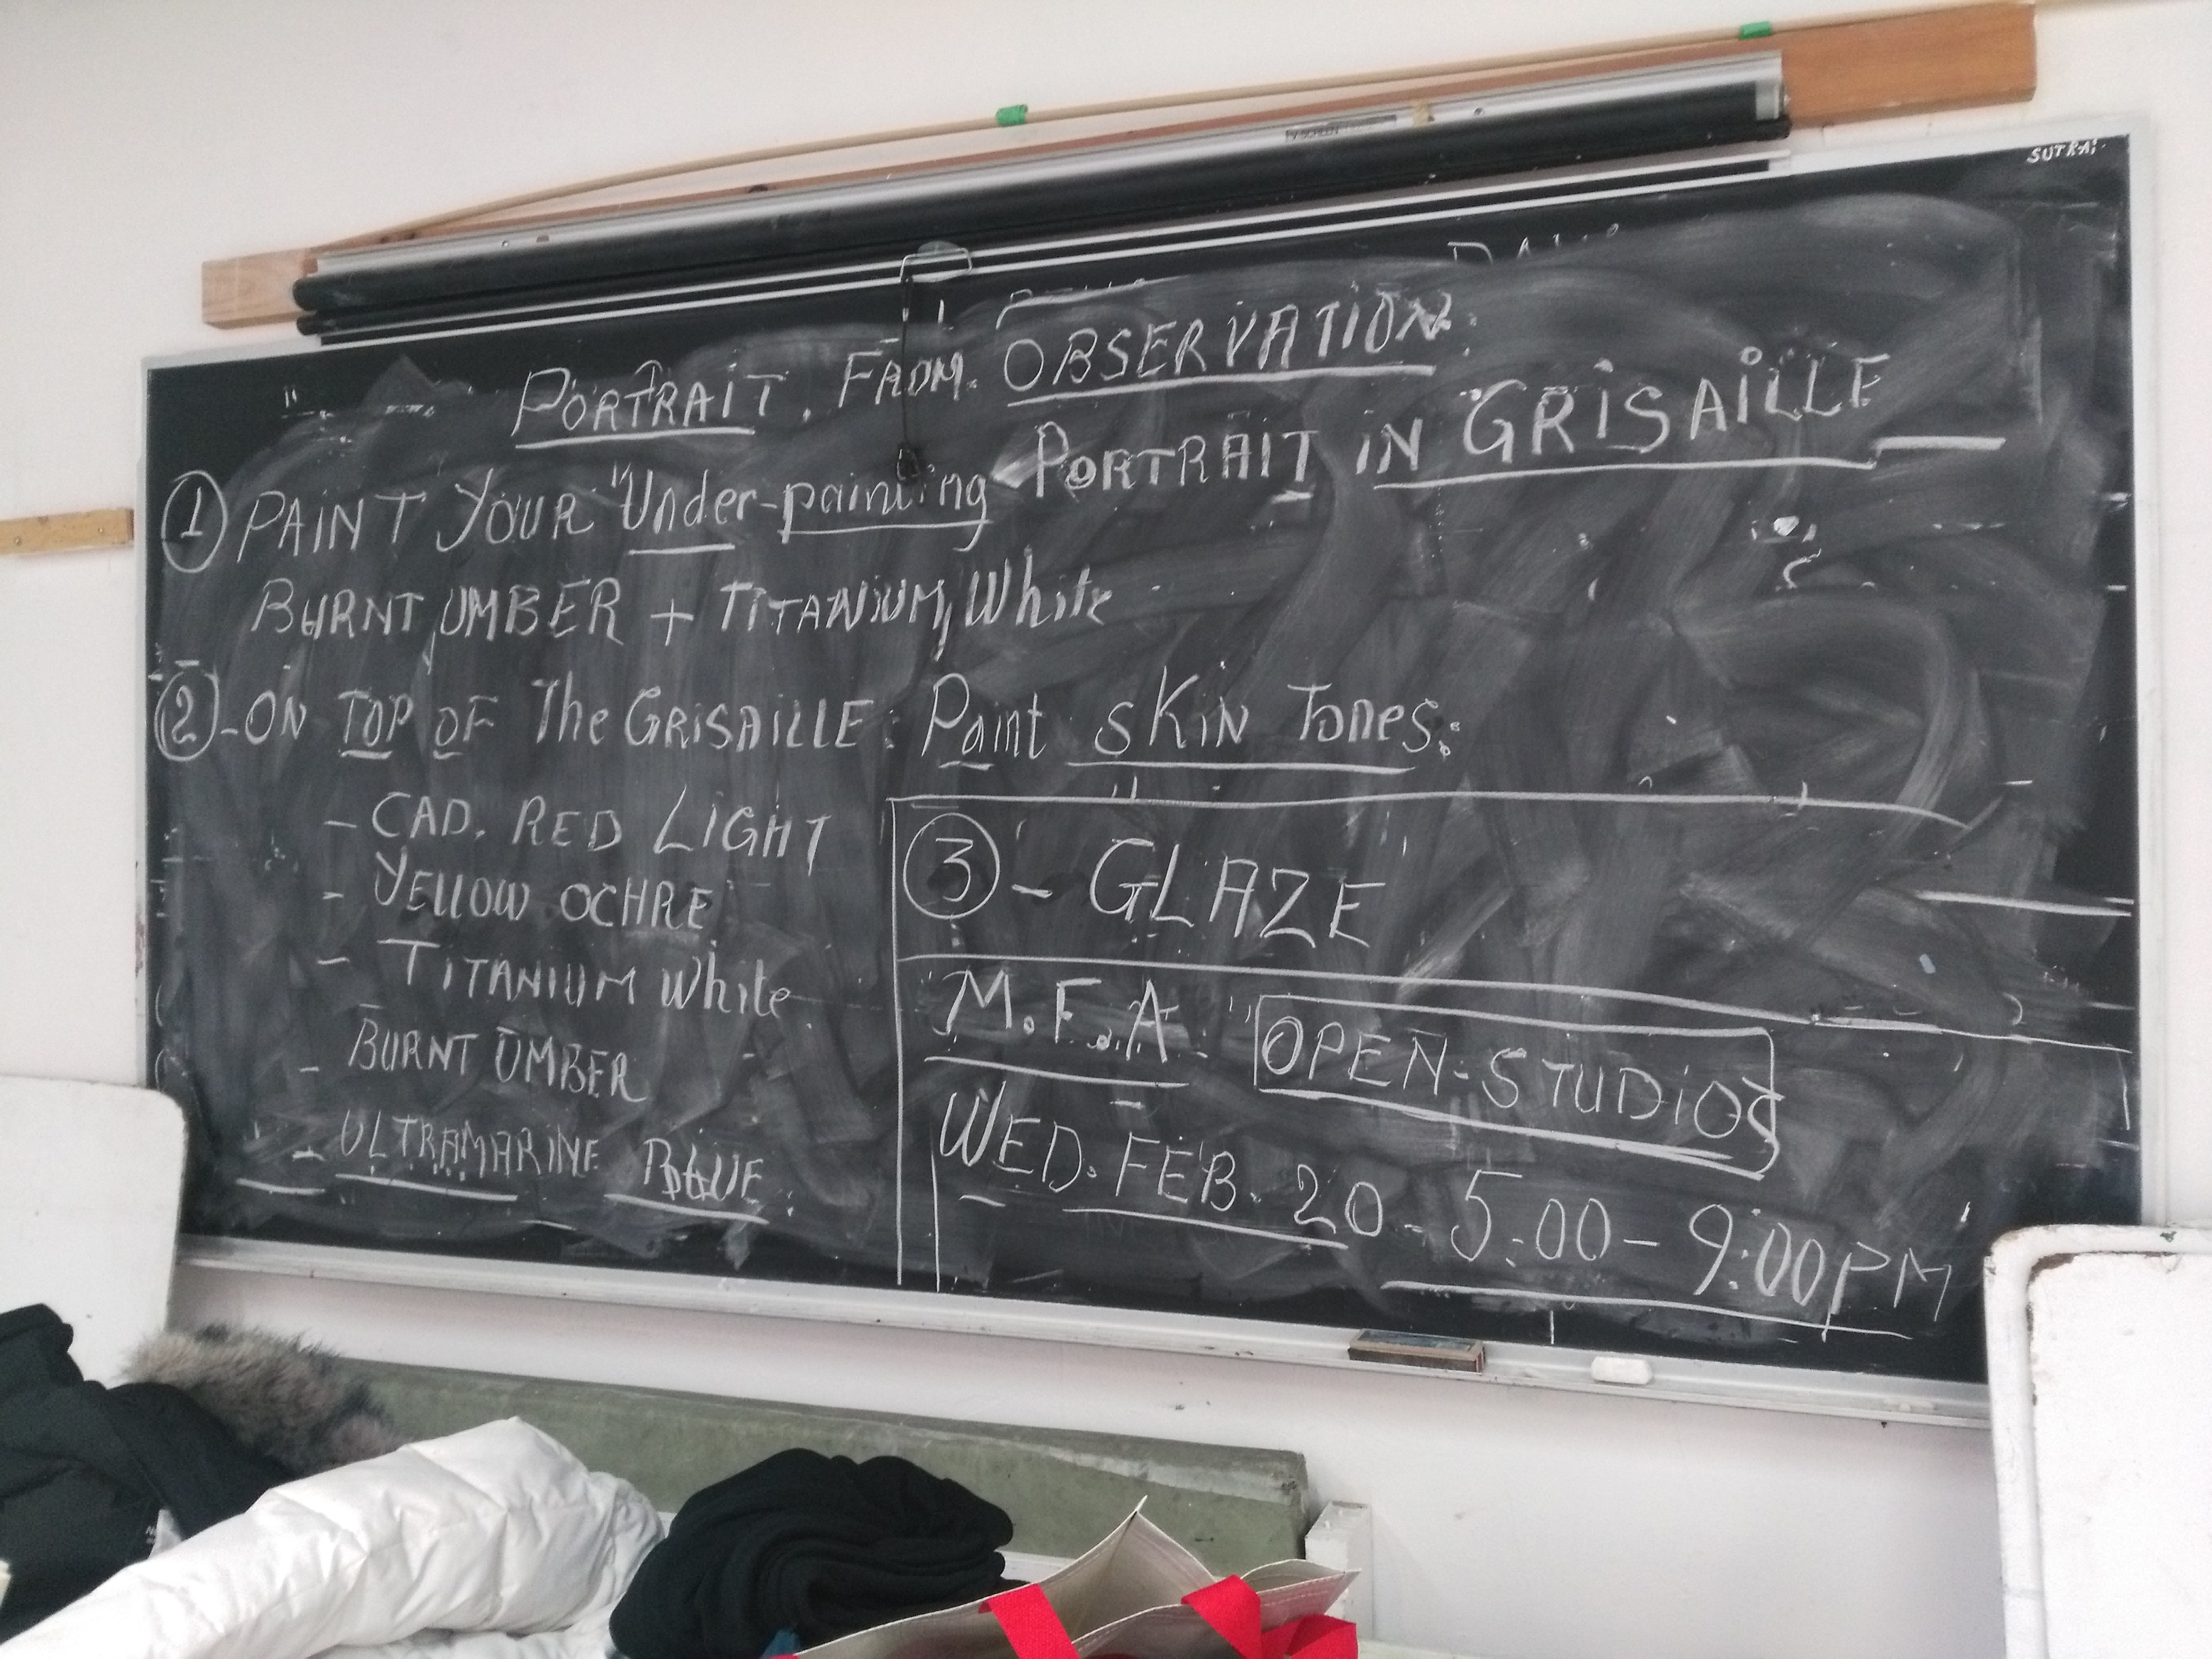 SUTRA;
PORTRAIT. FROM. OBSERVATION.
① PAINT YOUR "Under-painting PORTRAIT iN GRiSAiLLE
BURNT UMBER + TiTANIUM White
② - ON TOP OF The GRISAILLE: Paint SKIN Tones:
- CAD. RED LiGHT
- YELLOW OCHRE
- TiTANIUM White.
- BURNT UMBER
- ULTRAMARINE BLUE.
③ - GLAZE
M.F.A. "OPEN-STUDiOS
WED. FEB. 20 - 5:00 - 9:00PM